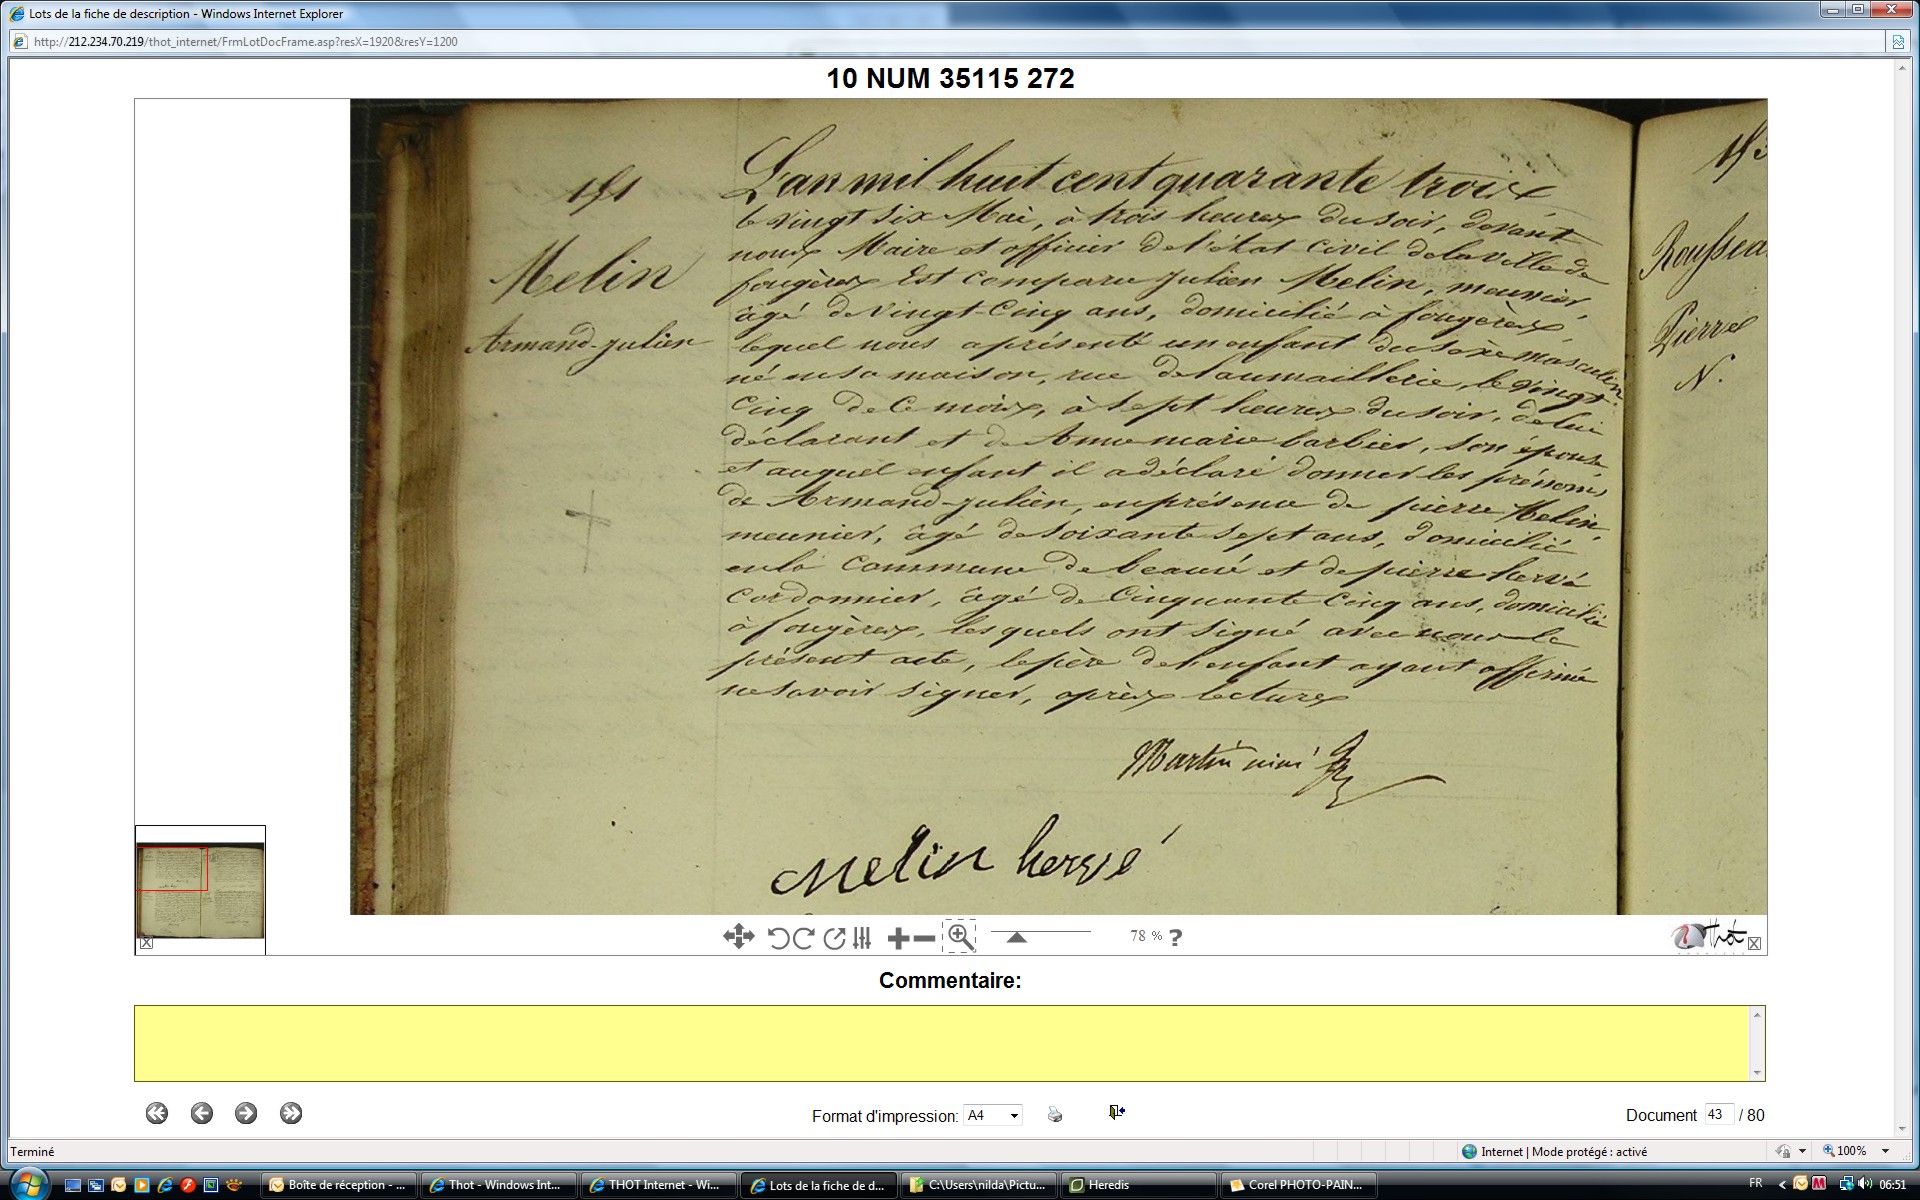 Lots de la fiche de description - Windows Internet Explorer
http://212.234.70.219/thot_internet/FrmLotDocFrame.asp?resX=1920&resY=1200
10 NUM 35115 272
151
Melin
Armand-julien
L'an mil huit cent quarante troix
le vingt six Mai, à trois heures du soir, devant
nous Maire et officier de l'état civil de la ville de
fougères Est comparu Julien Melin, meunier,
âgé de vingt-cinq ans, domicilié à fougères
lequel nous a présenté un enfant du sexe masculin
né en sa maison, rue de laumaillerie, le vingt
cinq de ce mois, à sept heures du soir, de lui
déclarant et de Anne marie barbier, son épouse
et auquel enfant il a déclaré donner les prénoms
de Armand-julien, en présence de pierre Melin,
meunier, âgé de soixante sept ans, domicilié
en la commune de beaucé et de pierre hervé
cordonnier, âgé de cinquante cinq ans, domicilié
à fougères, lesquels ont signé avec nous le
présent acte, le père de l'enfant ayant affirmé
ne savoir signer, après lecture
Martin
Melin hervé
153
Rousseau
Pierre
N.
78 % ?
Thot
Commentaire:
Format d'impression: A4
Document 43 / 80
Terminé
Internet | Mode protégé : activé
100%
Boîte de réception - ...
Thot - Windows Int...
THOT Internet - Wi...
Lots de la fiche de d...
C:\Users\nilda\Pictu...
Heredis
Corel PHOTO-PAIN...
FR
06:51